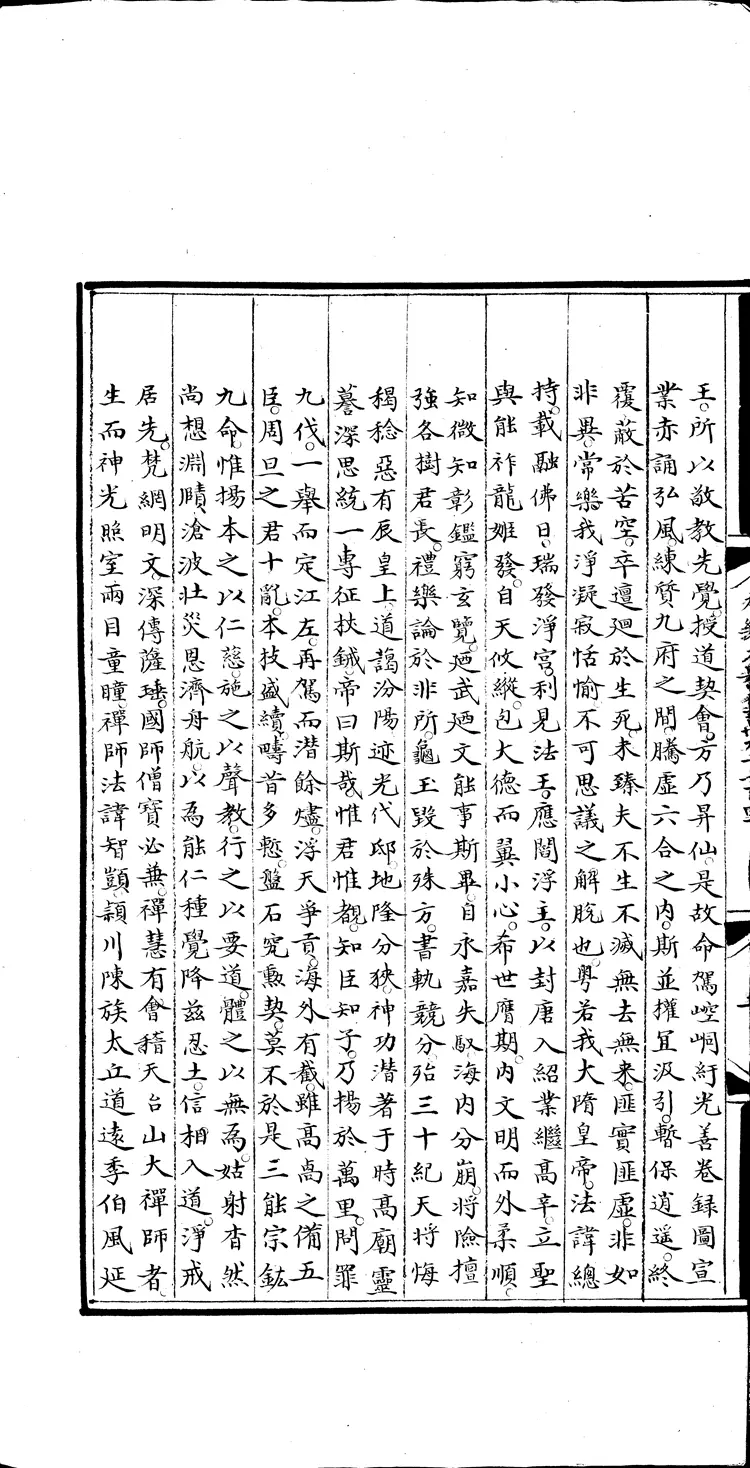 王所以敬教先覺授道契會方乃昇仙是故命駕崆峒紆光善卷録圖宣
業赤誦弘風練質九府之間騰虛六合之内斯並權宜汲引暫保逍遥終
覆蔽於苦空卒邅廻於生死未臻夫不生不滅無去無来匪實匪虛非如
非異常樂我淨凝寂恬愉不可思議之解脫也粤若我大隋皇帝法諱總
持載融佛日瑞發淨宫利見法王應閻浮主以封唐入紹業繼高辛立聖
與能祚龍姬發自天攸縱包大德而翼小心希世膺期内文明而外柔順
知微知彰鑑窮玄覽廼武廼文能事斯畢自永嘉失馭海内分崩將險擅
強各樹君長禮樂論於非所龜玉毀於殊方書軌競分殆三十紀天將悔
禍稔惡有辰皇上道謁汾陽迹光代邸地隆分狹神功潜著于時高廟靈
謩深思統一專征扶鉞帝曰斯哉惟君惟覩知臣知子乃揚於萬里問罪
九伐一舉而定江左再駕而潜餘燼浮天爭貢海外有截雖高卨之備五
臣周旦之君十亂本技盛續疇昔多慙盤石究勲契莫不於是三能宗鈜
九命惟揚本之以仁慈施之以聲教行之以要道體之以無爲姑射杳然
尚想淵賾滄波壮災恩濟舟航以爲能仁種覺降茲忍土信相入道淨戒
居先梵網明文深傳薩埵國師僧寶必兼禪慧有會稽天台山大禪師者
生而神光照室兩目童瞳禪師法諱智顗頴川陳族太丘道遠季伯風延